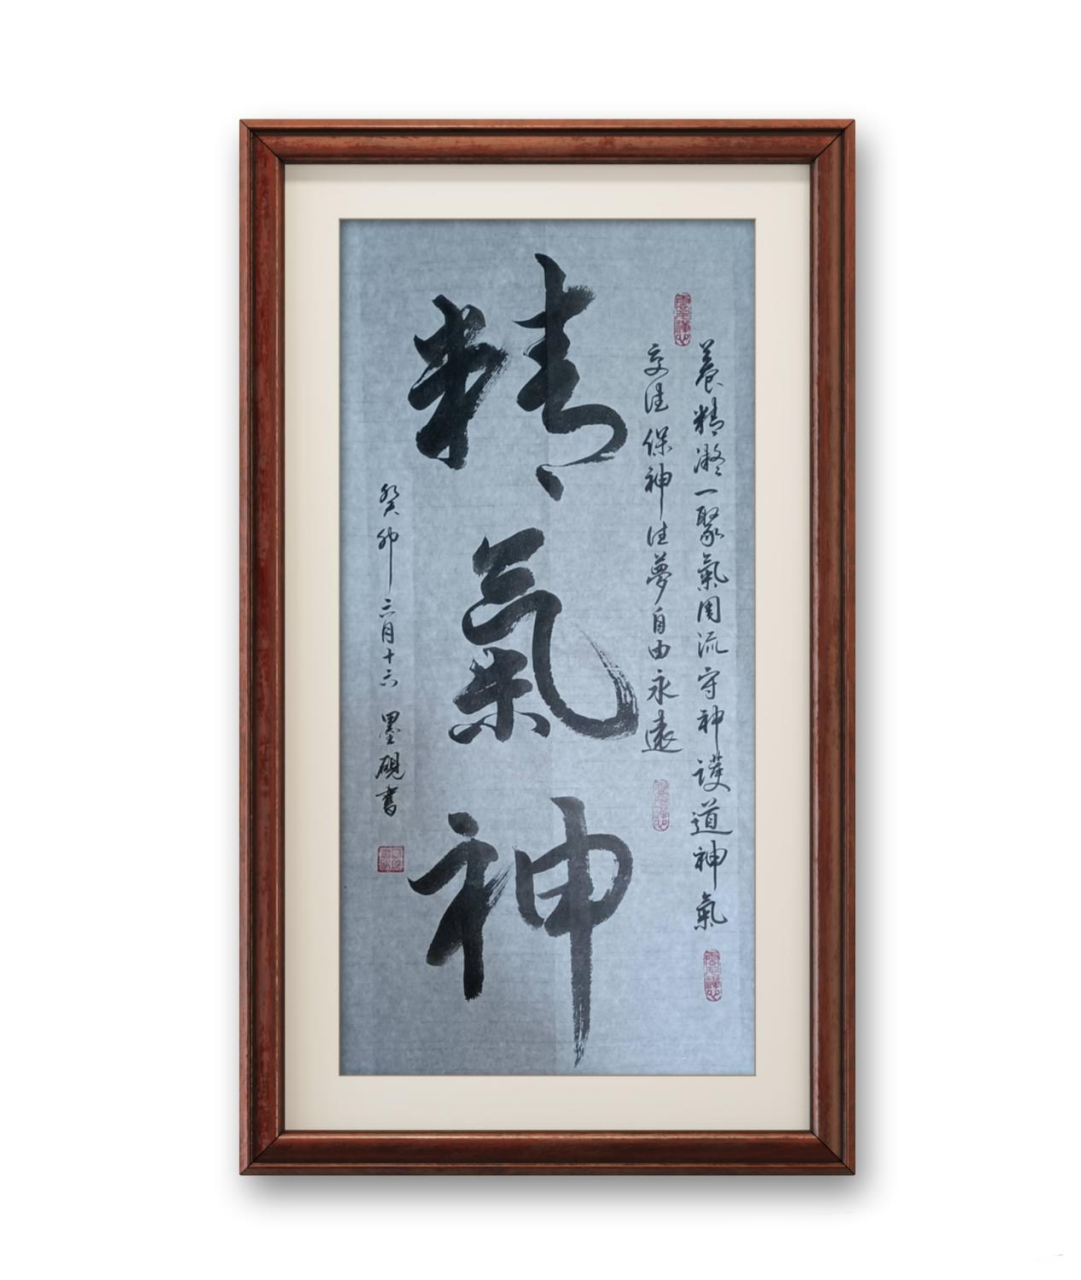 養精凝一聚氣周流守神護道神氣
交佳保神佳夢自由永遠
精氣神
癸卯三月十六 墨硯書